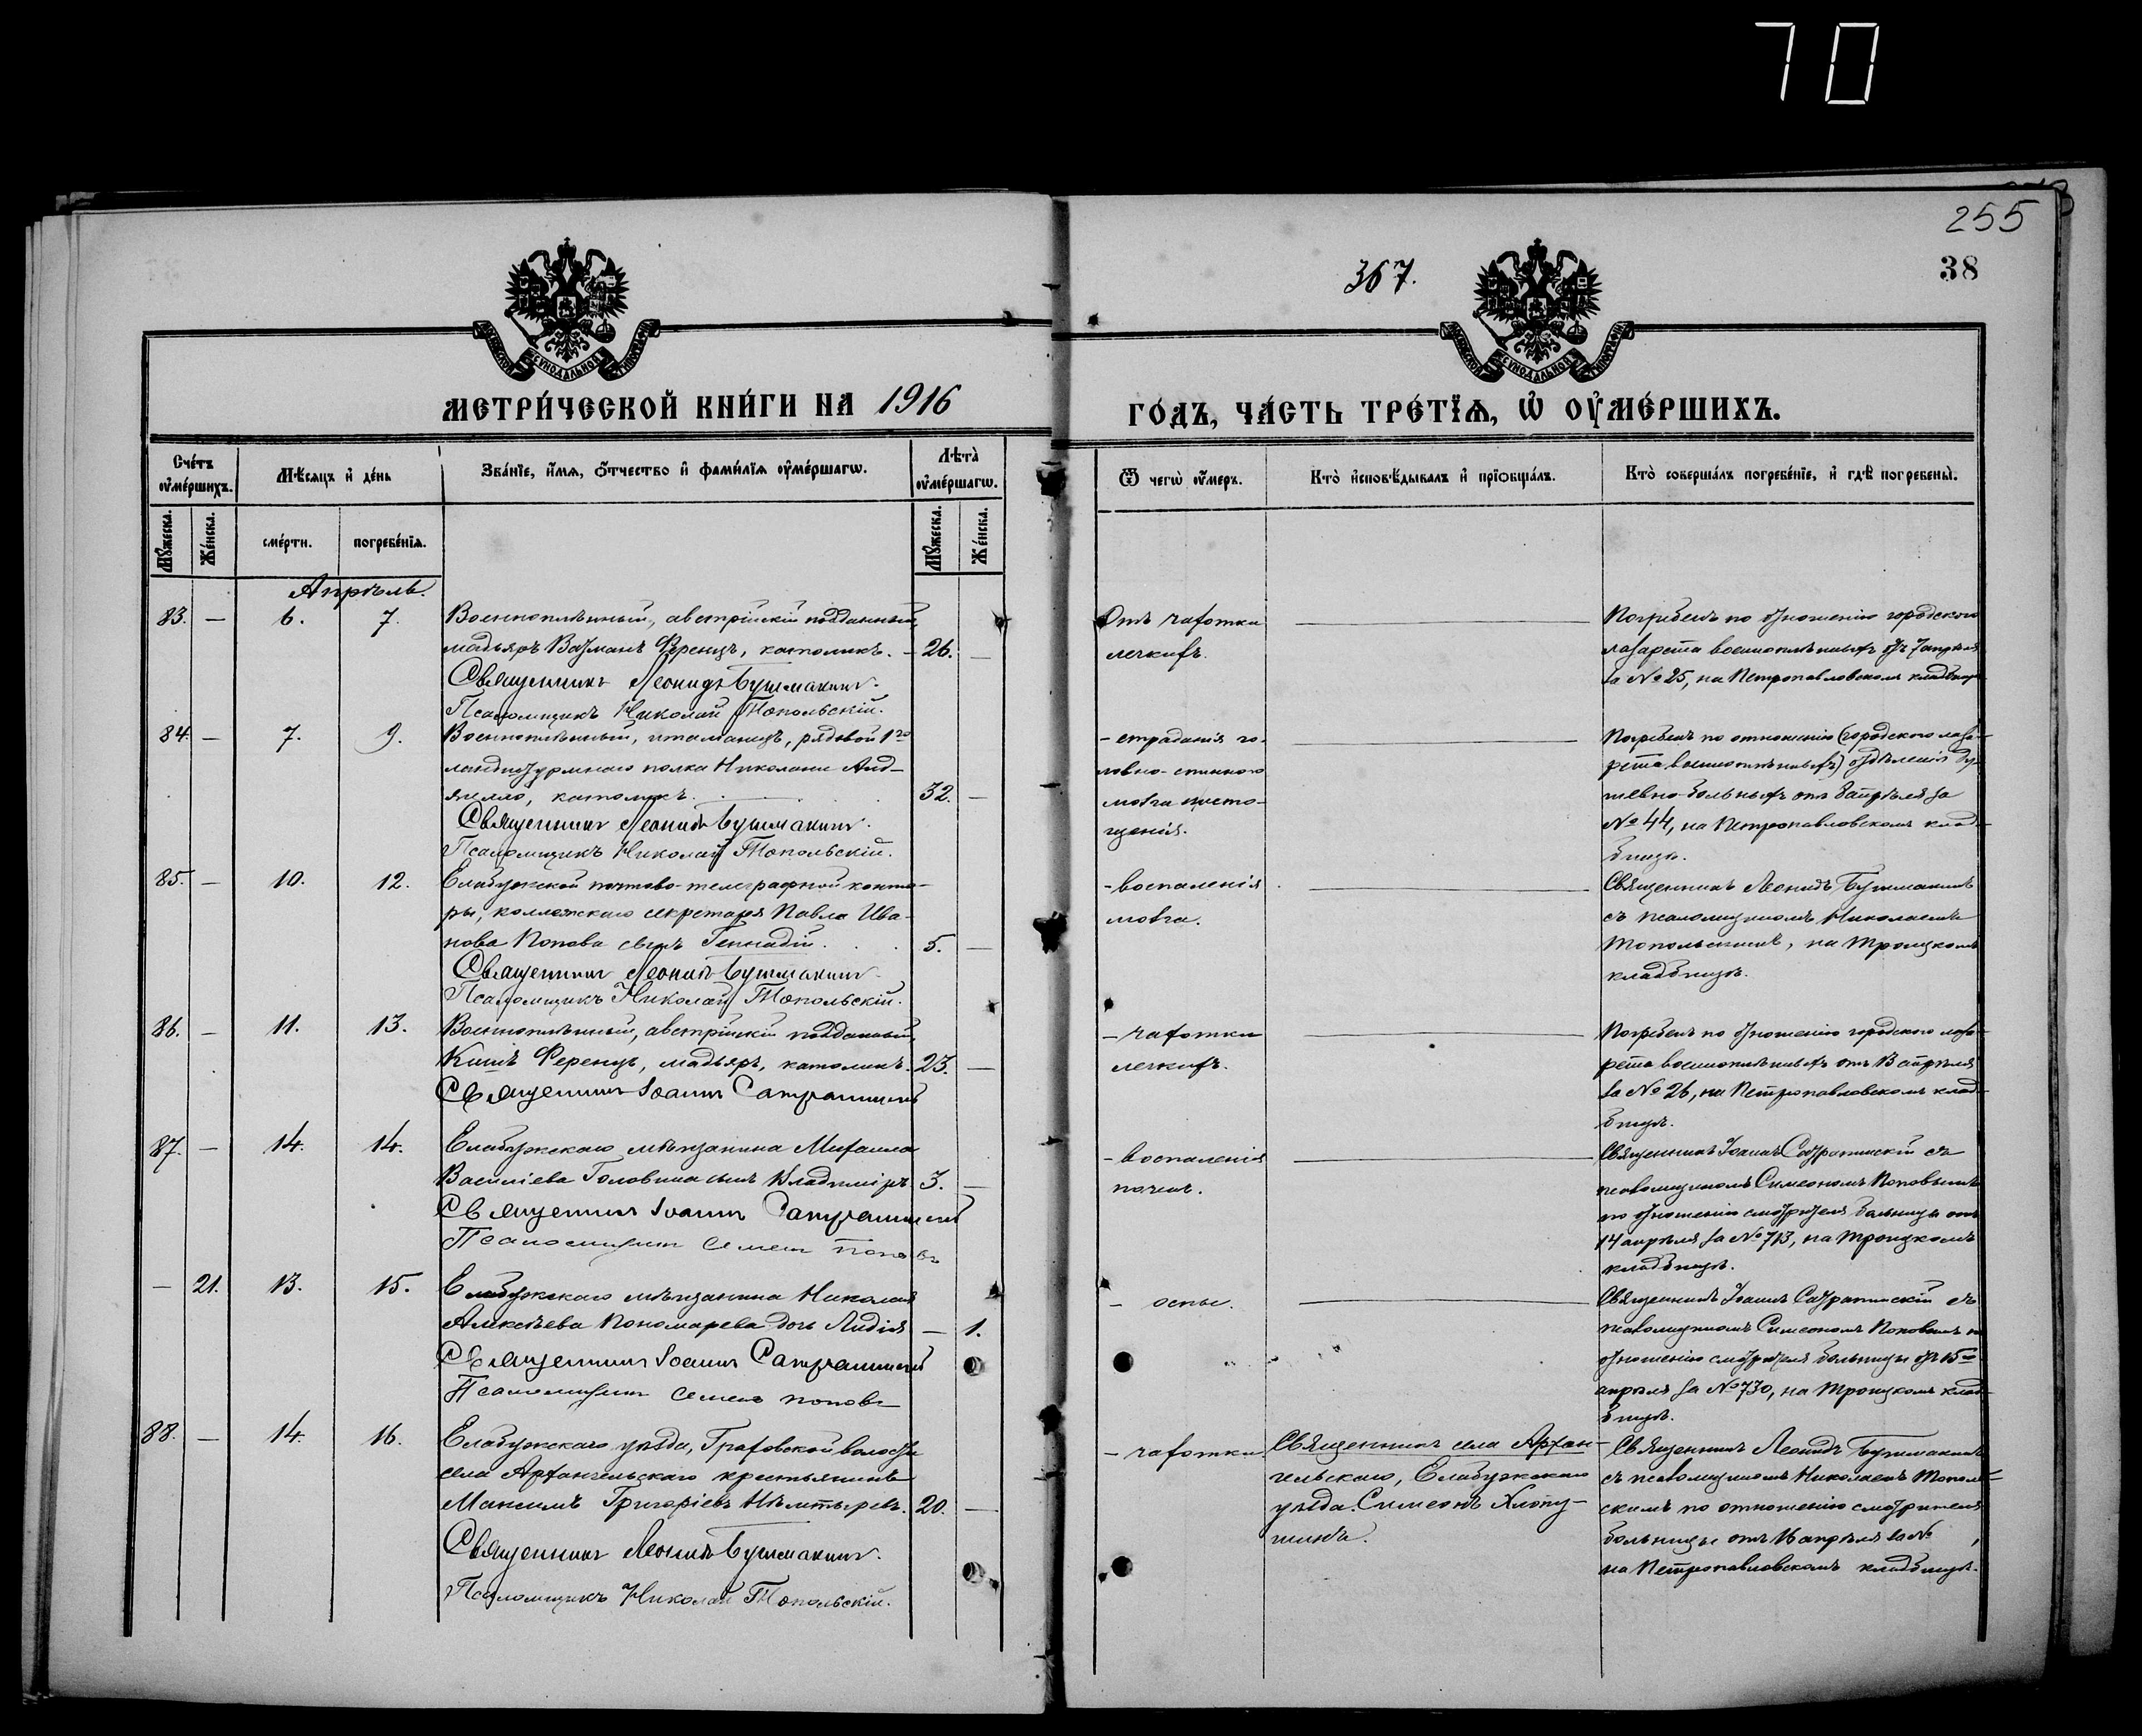 70
255
367.
38
МЕТРИ́ЧЕСКОЙ КНИ́ГИ НА 1916
ГО́ДЪ, ЧА́СТЬ ТРЕ́ТЇѦ, Ѡ҆ ОУ҆МЕ́РШИХЪ.
Сче́тъ
оу҆ме́ршихъ.
Мѣ́сяцъ и҆ де́нь
Зва́нїе, и҆́мѧ, ѻ҆́тчество и҆ фами́лїѧ оу҆ме́ршагѡ.
Лѣ́та
оу҆ме́ршагѡ.
Ѿ чегѡ̀ оу҆́меръ.
Кто̀ и҆сповѣ́дывалъ и҆ прїѡбща́лъ.
Кто̀ соверша́лъ погребе́нїе, и҆ гдѣ̀ погребены̀.
Мꙋ́жеска.
Же́нска.
сме́рти.
погребе́нїѧ.
Мꙋ́жеска.
Же́нска.
Апрѣль.
83. — 6. 7. Военноплѣнный, австрійскій подданный,
мадьяръ Вазманъ Ференцъ, католикъ. — 26. —
Священникъ Леонидъ Бушмакинъ.
Псаломщикъ Николай Топольскій.
Отъ чахотки
легкихъ.
Погребенъ по отношенію городского
лазарета военноплѣнныхъ отъ 7 апрѣля
за № 25, на Петропавловскомъ кладбищѣ
84. — 7. 9. Военноплѣнный, италианецъ, рядовой 1го
ландштурмнаго полка Николани Анд-
католикъ. 32. —
Священникъ Леонидъ Бушмакинъ.
Псаломщикъ Николай Топольскій.
- страданія го-
ловно-спинного
мозга
щенія.
Погребенъ по отношенію (городского лаза-
рета военноплѣнныхъ) отдѣленія ду-
шевно-больныхъ отъ апрѣля за
№ 44, на Петропавловскомъ клад-
бищѣ.
85. — 10. 12. Елабужской почтово-телеграфной конто-
ры, коллежскаго секретаря Павла Ива-
нова Попова сынъ Геннадій. 5. —
Священникъ Леонидъ Бушмакинъ.
Псаломщикъ Николай Топольскій.
- воспаленія
мозга.
Священникъ Леонидъ Бушмакинъ
съ псаломщикомъ Николаемъ
Топольскимъ, на Троицкомъ
кладбищѣ.
86. — 11. 13. Военноплѣнный, австрійскій подданный,
Кишъ Ференцъ, мадьяръ, католикъ. 23. —
Священникъ Іоаннъ Сатрапинскій
- чахотки
легкихъ.
Погребенъ по отношенію городского лаза-
рета военноплѣнныхъ отъ 13 апрѣля
за № 26, на Петропавловскомъ клад-
бищѣ.
87. — 14. 14. Елабужскаго мѣщанина Михаила
Василіева Головина сынъ Владиміръ 3. —
Священникъ Іоаннъ Сатрапинскій
Псаломщикъ Семенъ Поповъ
- воспаленія
почекъ.
Священникъ Іоаннъ Сатрапинскій съ
псаломщикомъ Симеономъ Поповымъ
по отношенію смотрителя больницы отъ
14 апрѣля за № 713, на Троицкомъ
кладбищѣ.
— 21. 13. 15. Елабужскаго мѣщанина Николая
Алексѣева Пономарева дочь Лидія — 1.
Священникъ Іоаннъ Сатрапинскій
Псаломщикъ Семенъ Поповъ
- оспы.
Священникъ Іоаннъ Сатрапинскій съ
псаломщикомъ Симеономъ Поповымъ по
отношенію смотрителя больницы отъ 15го
апрѣля за № 730, на Троицкомъ клад-
бищѣ.
88. — 14. 16. Елабужскаго уѣзда, Граховской волости
села Архангельскаго крестьянинъ
Максимъ Григоріевъ 20. —
Священникъ Леонидъ Бушмакинъ.
Псаломщикъ Николай Топольскій.
- чахотки
Священникъ села Архан-
гельскаго, Елабужскаго
уѣзда Симеонъ
Священникъ Леонидъ Бушмакинъ
съ псаломщикомъ Николаемъ Тополь-
скимъ по отношенію смотрителя
больницы отъ апрѣля за № ,
на Петропавловскомъ кладбищѣ.